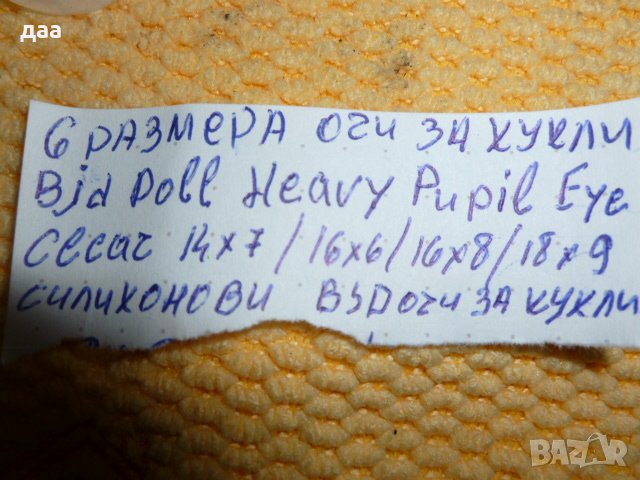 даа
6 РАЗМЕРА ОЧИ ЗА КУКЛИ
Bjd Doll Heavy Pupil Eye
Сесаг 14х7/16х6/16х8/18х9
СИЛИКОНОВИ BJD ОЧИ ЗА КУКЛИ
BAZAR